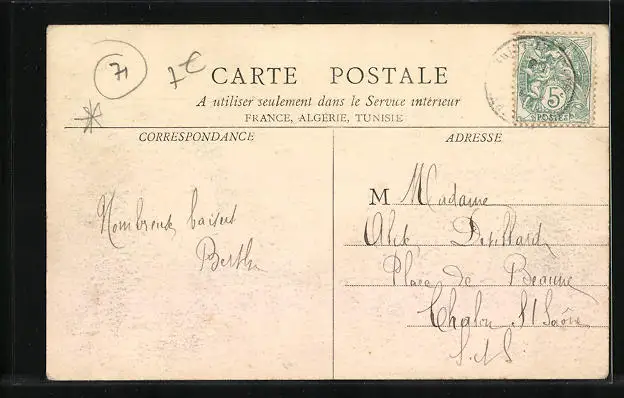 71
CARTE POSTALE
A utiliser seulement dans le Service intérieur
FRANCE, ALGÉRIE, TUNISIE
CORRESPONDANCE
ADRESSE
5c
POSTES
Nombreux baisers
Berthe
M Madame
Place de Beaune
Chalon S/ Saône
S. & L.